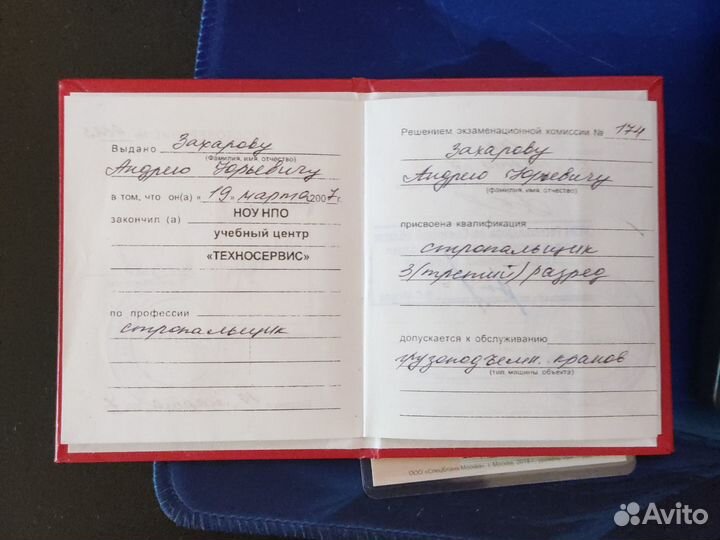 Выдано Захарову
(Фамилия, имя, отчество)
Андрею Юрьевичу
в том, что он(а) « 19 » марта 2007 г.
закончил (а) НОУ НПО
учебный центр
«ТЕХНОСЕРВИС»
по профессии
стропальщик
Решением экзаменационной комиссии № 174
Захарову
Андрею Юрьевичу
(фамилия, имя, отчество)
присвоена квалификация
стропальщик
3 (третий) разряд
допускается к обслуживанию
грузоподъемн. кранов
(тип, машины объекта)
ООО «Спецбланк-Москва», г. Москва, 2018 г.
Avito